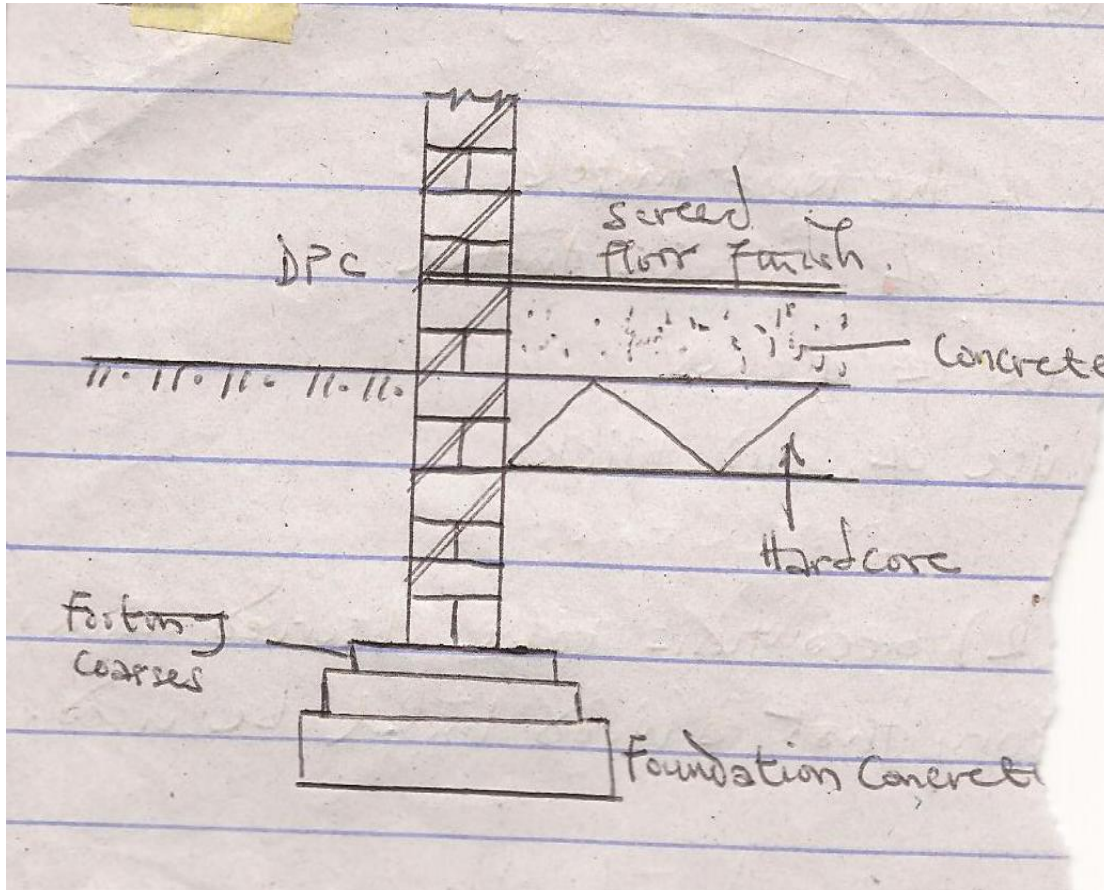 screed
floor finish.
DPC
Concrete
Hardcore
Footing
coarses
Foundation Concrete